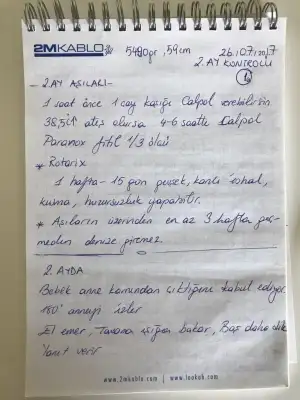 2MKABLO 5400gr, 59cm 26.07.2017
2. AY KONTROLÜ
1
2. AY AŞILARI -
1 saat önce 1 çay kaşığı Calpol verebilirsin
38,5↑ ateş olursa 4-6 saatte Calpol
Paranox fitil 1/3 ölçü
* Rotarix
1 hafta - 15 gün gevşek, kanlı ishal,
kusma, huzursuzluk yapabilir.
* Aşıların üzerinden en az 3 hafta geç-
meden denize giremez
2. AYDA
Bebek anne karnından çıktığını kabul ediyor
180° anneyi izler
El emer, Tavana ışığa bakar, Baş daha dik
Yanıt verir
www.2mkablo.com | www.lookoh.com